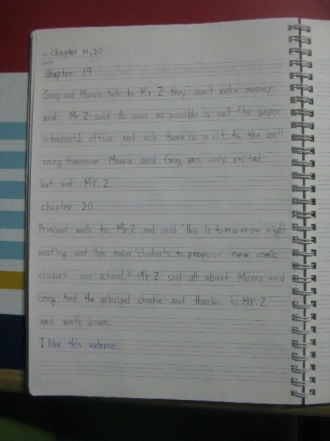 Chapter 19, 20
chapter 19
Greg and Maura talk to Mr. Z they want make money
and Mr. Z said As soon as possible is call the super
intendent's office and ask there is a sit. As the bell
rang Maura and Greg was very excited,
but not Mr. Z.
chapter 20
Principal walk to Mr. Z and said "This is tomorrow night
meeting and two students to propose new comic
our school." Mr. Z said all about Maura and
Greg. And the principal chuckle and thanks to Mr. Z
and walk down.
I like this sentence.